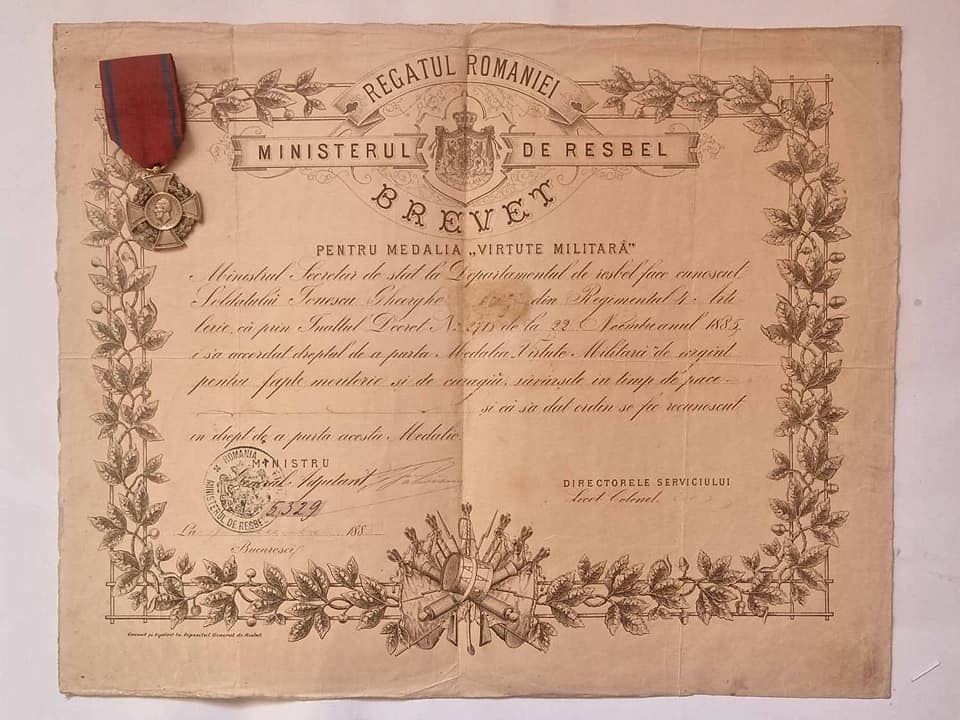 REGATUL ROMANIEI
MINISTERUL DE RESBEL
BREVET
PENTRU MEDALIA „VIRTUTE MILITARĂ”
Ministrul Secretar de stat la Departamentul de resbel face cunoscut
Soldatului Ionescu Gheorghe din Regimentul 4 Arti
lerie, că prin Inaltul Decret No 2718 de la 22 Noembrie anul 1885,
i s'a accordat dreptul de a purta Medalia Virtute Militară de argint
pentru fapte meritorie și de curagiu, săvârsite in timp de pace
și că s'a dat ordin se fie recunoscut
in drept de a purta acesta Medalie
MINISTRU
General Adjutant
ROMANIA
MINISTERUL DE RESBEL
5,329
DIRECTORELE SERVICIULUI
Locot Colonel
La 188
Bucuresci